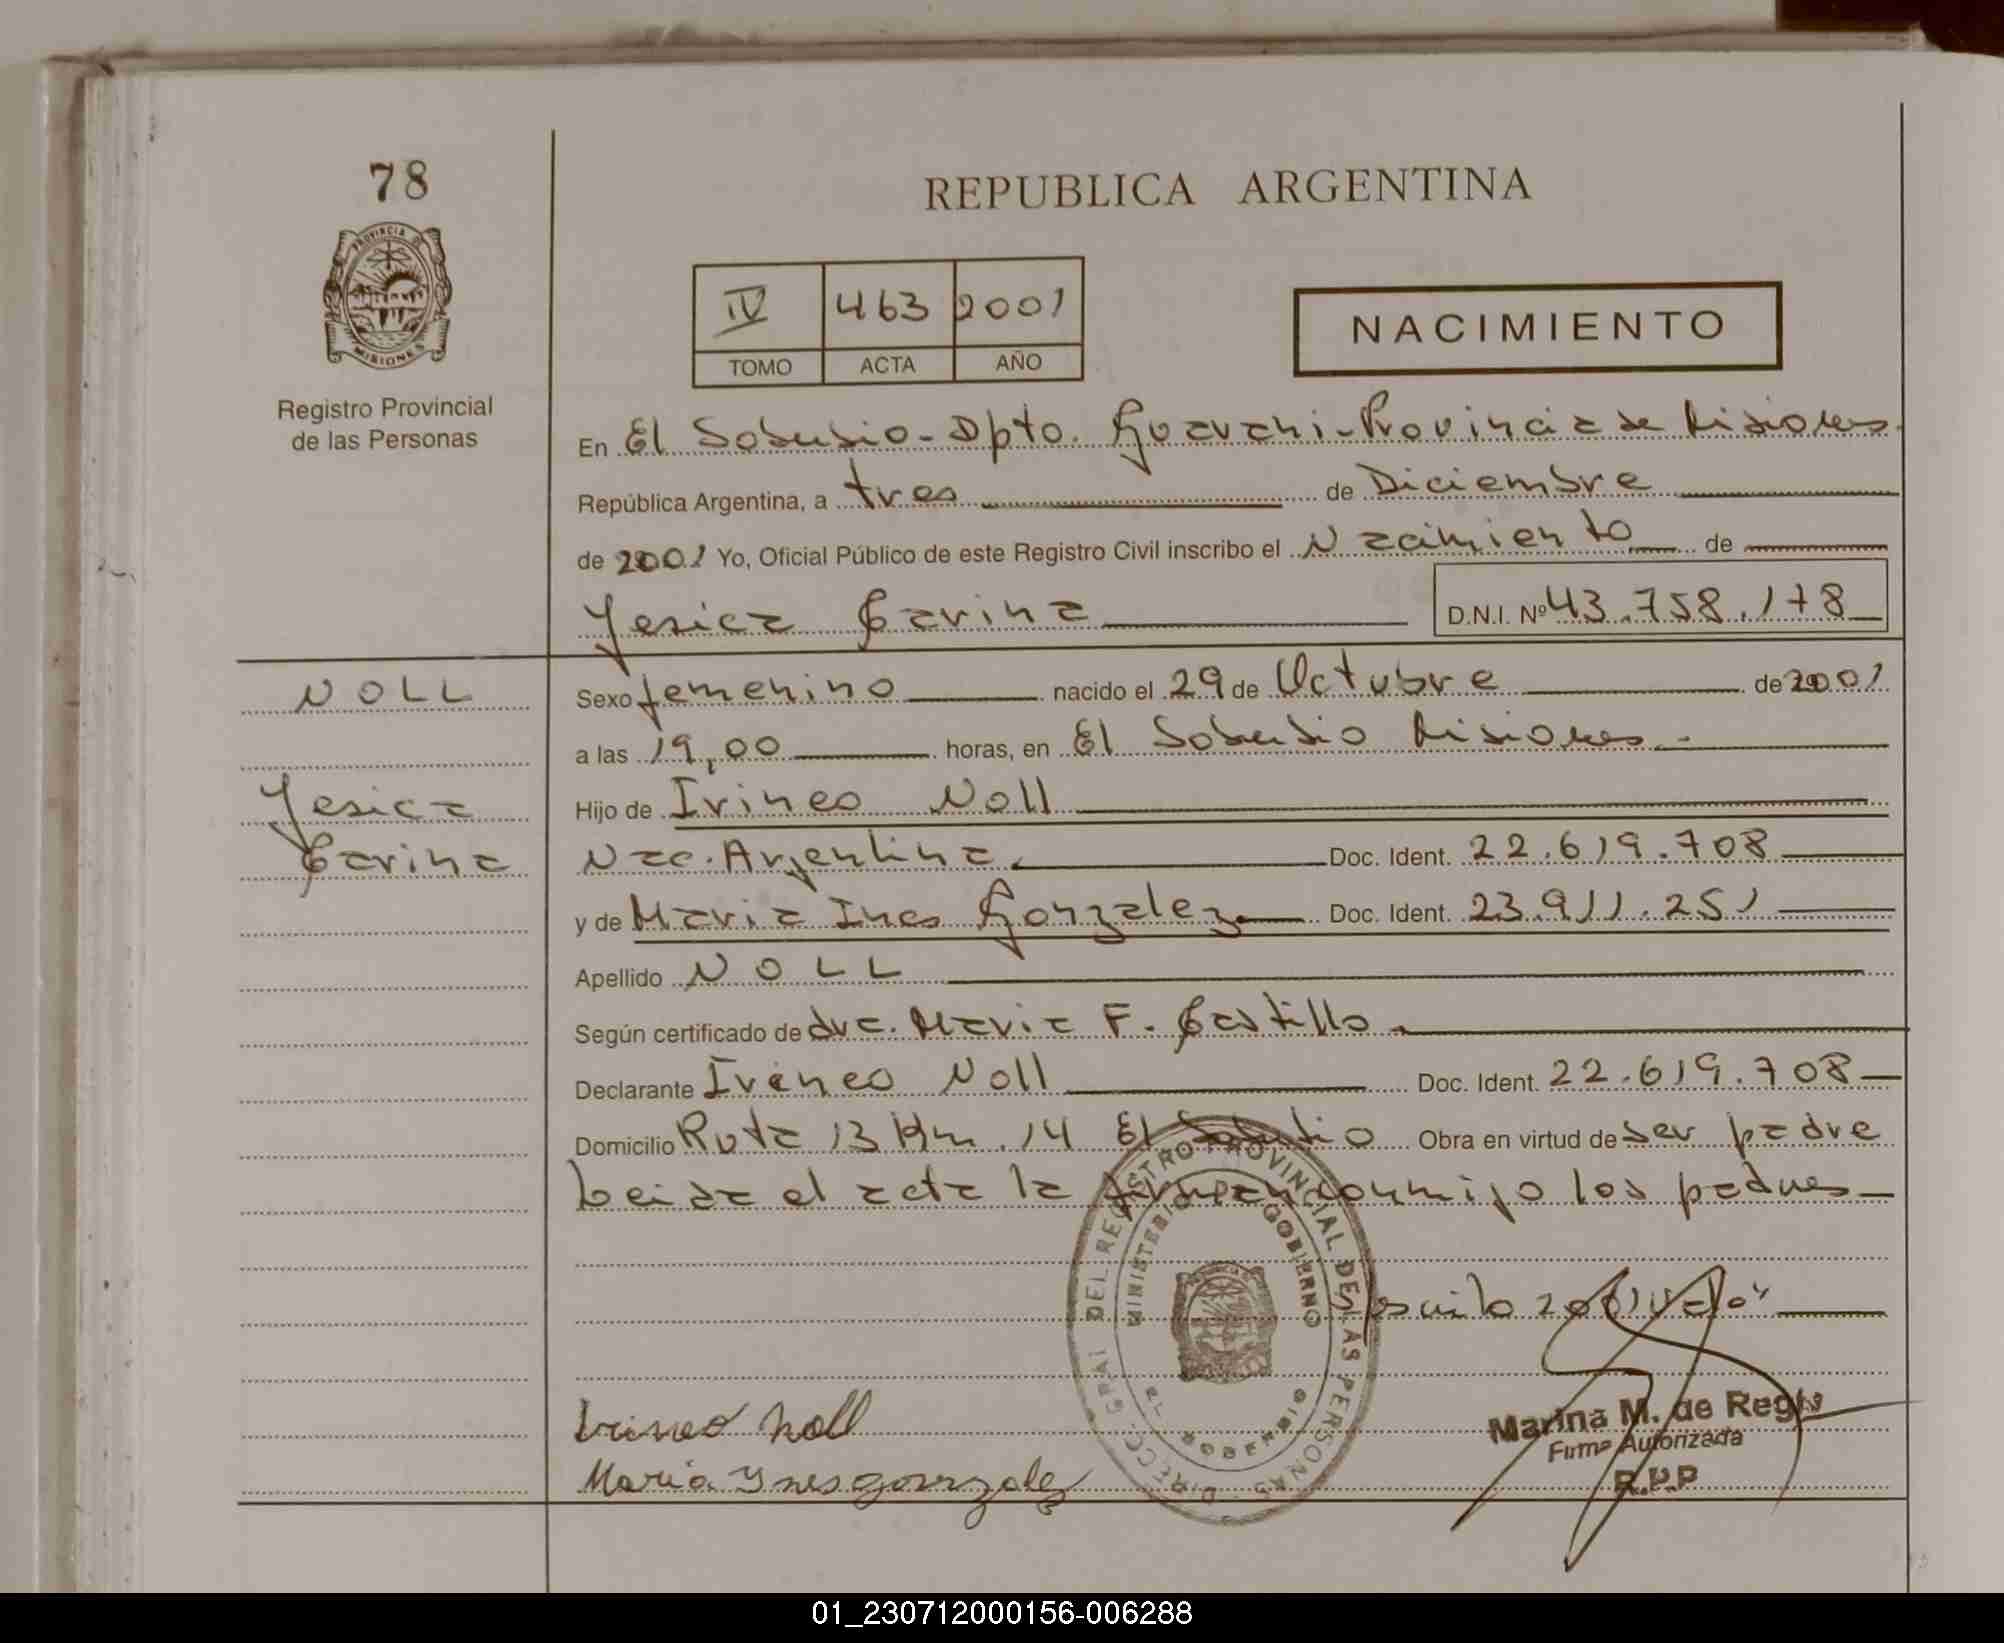 78
PROVINCIA DE
MISIONES
Registro Provincial
de las Personas
REPUBLICA ARGENTINA
IV 463 2001
TOMO ACTA AÑO
NACIMIENTO
En El Soberbio - Dpto. Guarani - Provincia de Misiones.
República Argentina, a tres de Diciembre
de 2001 Yo, Oficial Público de este Registro Civil inscribo el Nacimiento de
Yesica Carina D.N.I. Nº 43.758.178
NOLL
Yesica
Carina
Sexo femenino nacido el 29 de Octubre de 2001
a las 19,00 horas, en El Soberbio Misiones.-
Hijo de Irineo Noll
Nac. Argentina. Doc. Ident. 22.619.708
y de Maria Ines Gonzalez Doc. Ident. 23.911.251
Apellido NOLL
Según certificado de dra. Maria F. Castillo.
Declarante Irineo Noll Doc. Ident. 22.619.708
Domicilio Ruta 13 Km. 14 El Soberbio Obra en virtud de ser padre
Leida el acta la firman conmigo los padres
DIRECC. GRAL. DEL REGISTRO PROVINCIAL DE LAS PERSONAS
MINISTERIO GOBIERNO
EL SOBERBIO
2001
Irineo Noll
Maria Ynes gonzalez
Marina M. de Regis
Firma Autorizada
R.P.P
01_230712000156-006288